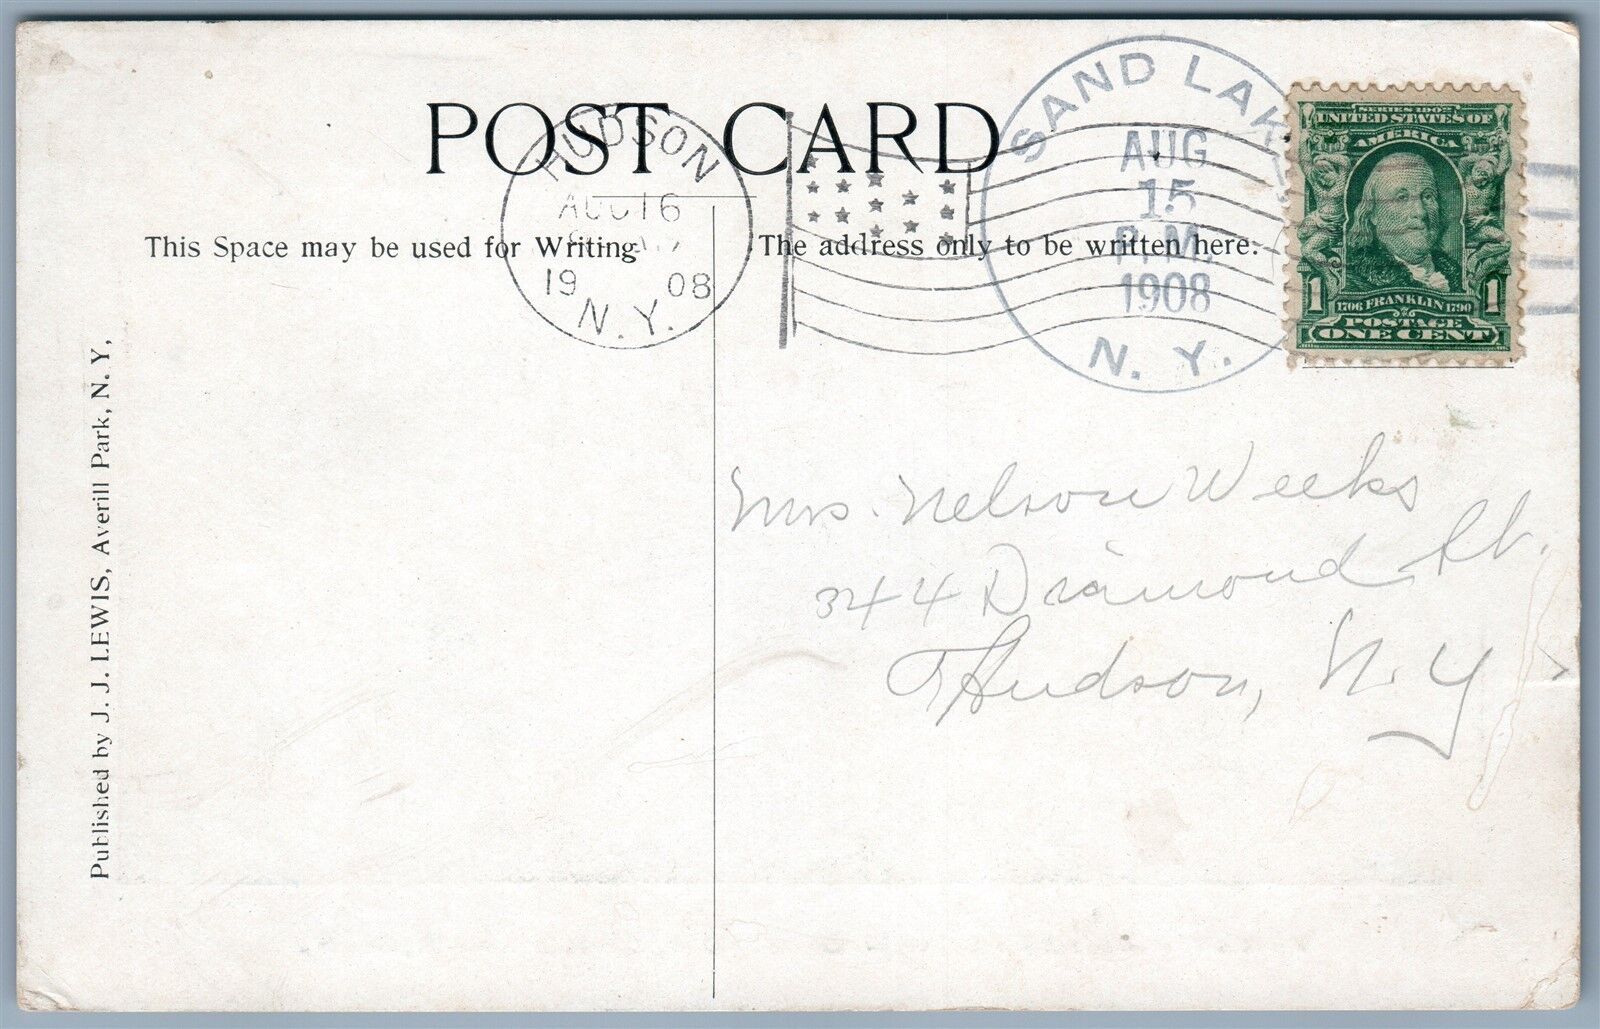 POST CARD
HUDSON
AUG 16
19 08
N. Y.
SAND LAKE
AUG
15
P.M.
1908
N. Y.
SERIES 1902
UNITED STATES OF
AMERICA
1 1
1706 FRANKLIN 1790
POSTAGE
ONE CENT
This Space may be used for Writing.
The address only to be written here.
Published by J. J. LEWIS, Averill Park, N. Y,
Mrs. Nelson Weeks
344 Diamond St.
Hudson, N. Y